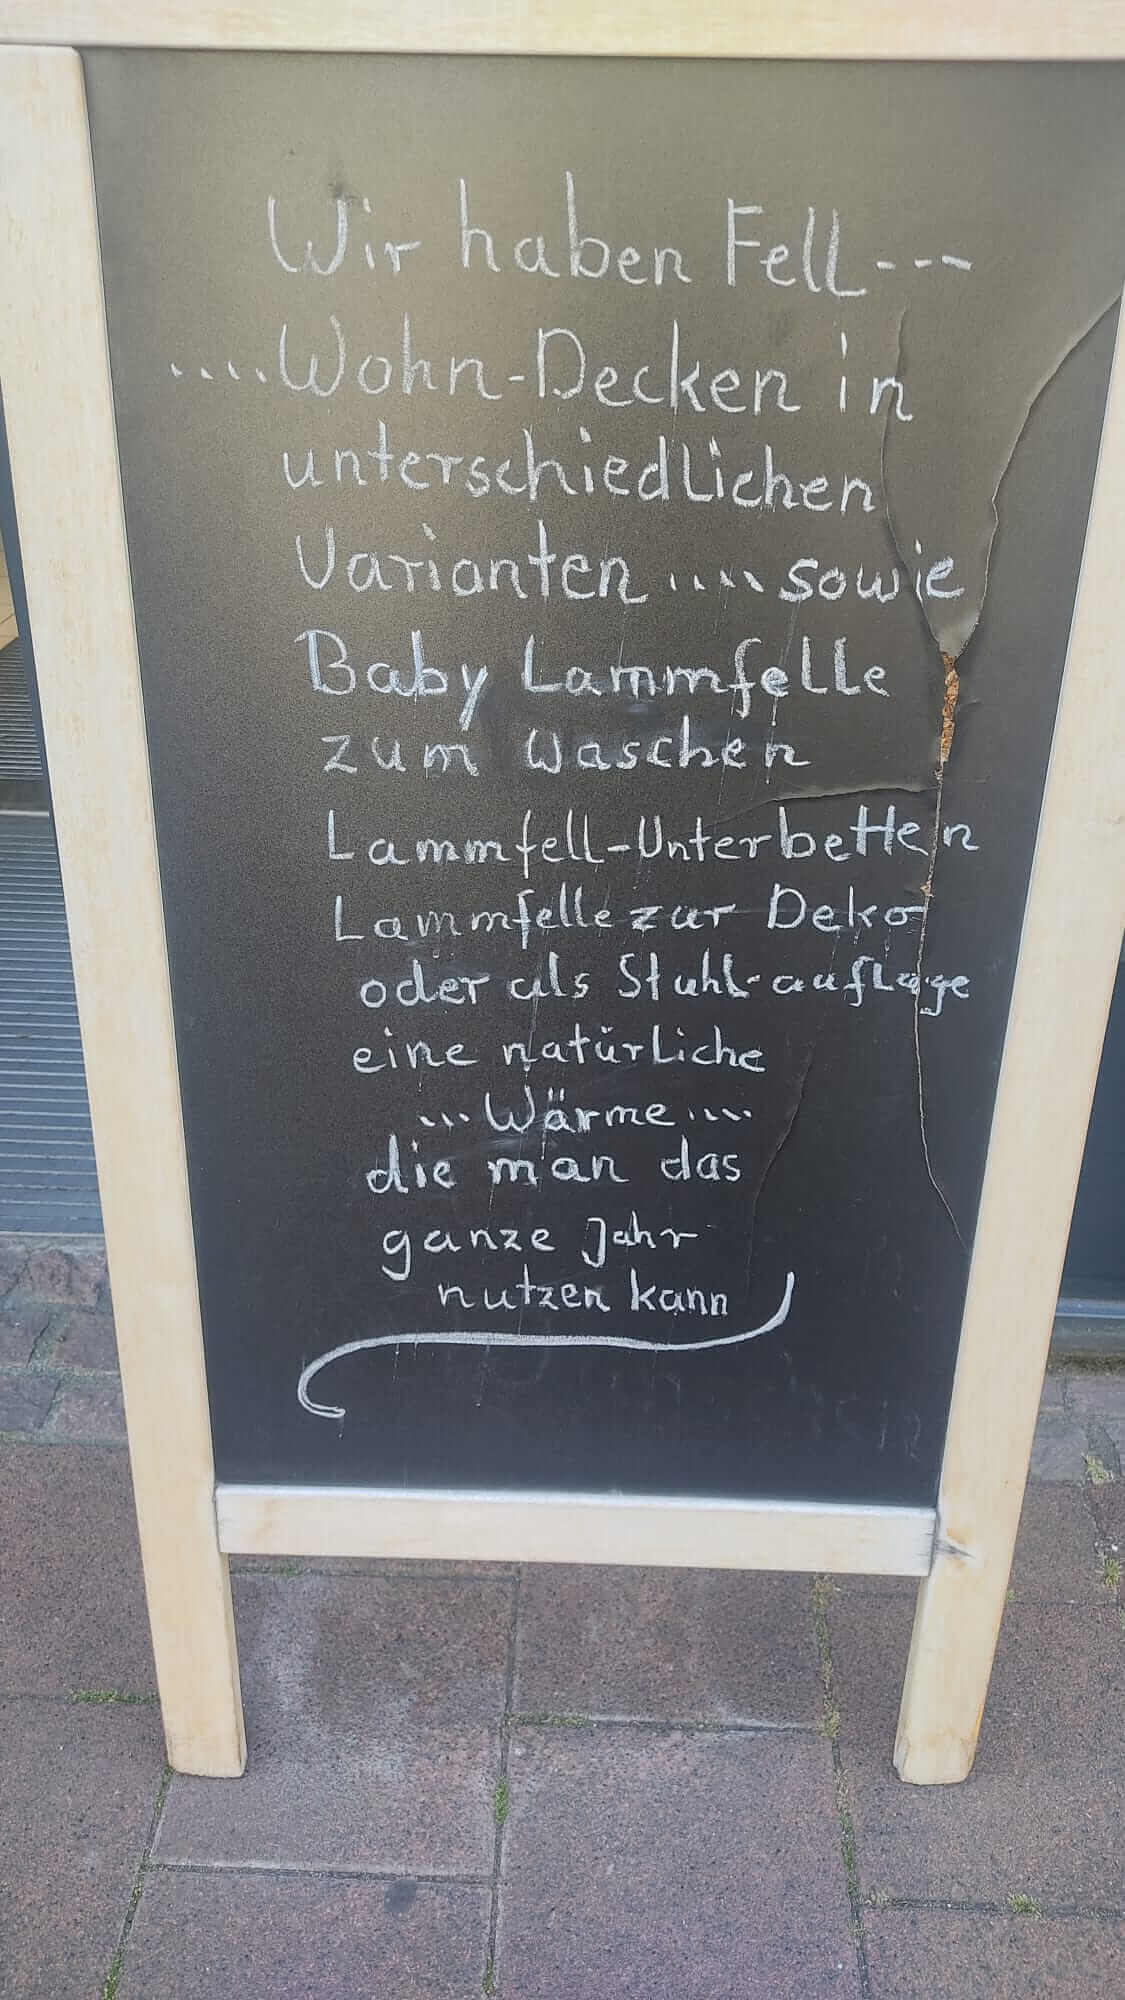 Wir haben Fell---
....Wohn-Decken in
unterschiedlichen
Varianten .... sowie
Baby Lammfelle
zum waschen
Lammfell-Unterbetten
Lammfelle zur Deko
oder als Stuhl-auflage
eine natürliche
...Wärme....
die man das
ganze Jahr
nutzen kann